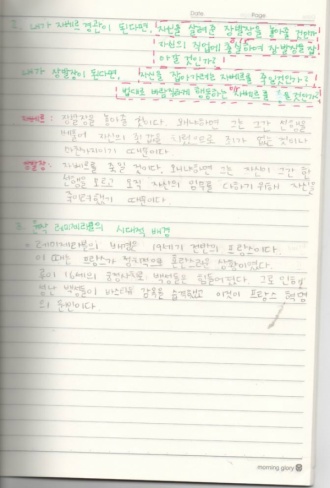 Date Page
2. 내가 자베르 경관이 된다면, 자신을 살려준 장발장을 놓아줄 것인가?
자신의 직업에 충실하여 장발장을 잡
아 둘 것인가?
내가 장발장이 된다면, 자신을 잡아가려는 자베르를 죽일것인가?
법대로 바람직하게 행동하는 자베르를 둘 것인가?
자베르 : 장발장을 놓아줄 것이다. 왜냐하면 그는 그간 선행을
자신의 죄값을 치뤘으므로 죄가 없는 것이나
마찬가지이기 때문이다.
장발장 : 자베르를 죽일 것이다. 왜냐하면 그는 자신이 그간 한
선행을 모르고 자신의 임무를 다하기 위해 자신을
때문이다.
3. 레미제라블의 시대적 배경
레미제라블의 배경은 19세기 전반의 프랑스이다.
이 때는 프랑스가 정치적으로 혼란스러운 상황이였다.
루이 16세의 백성들은 힘들어졌다. 그로 인해
백성들이 바스티유 감옥을 습격했고 이것이 프랑스 혁명
의 원인이다
morning glory